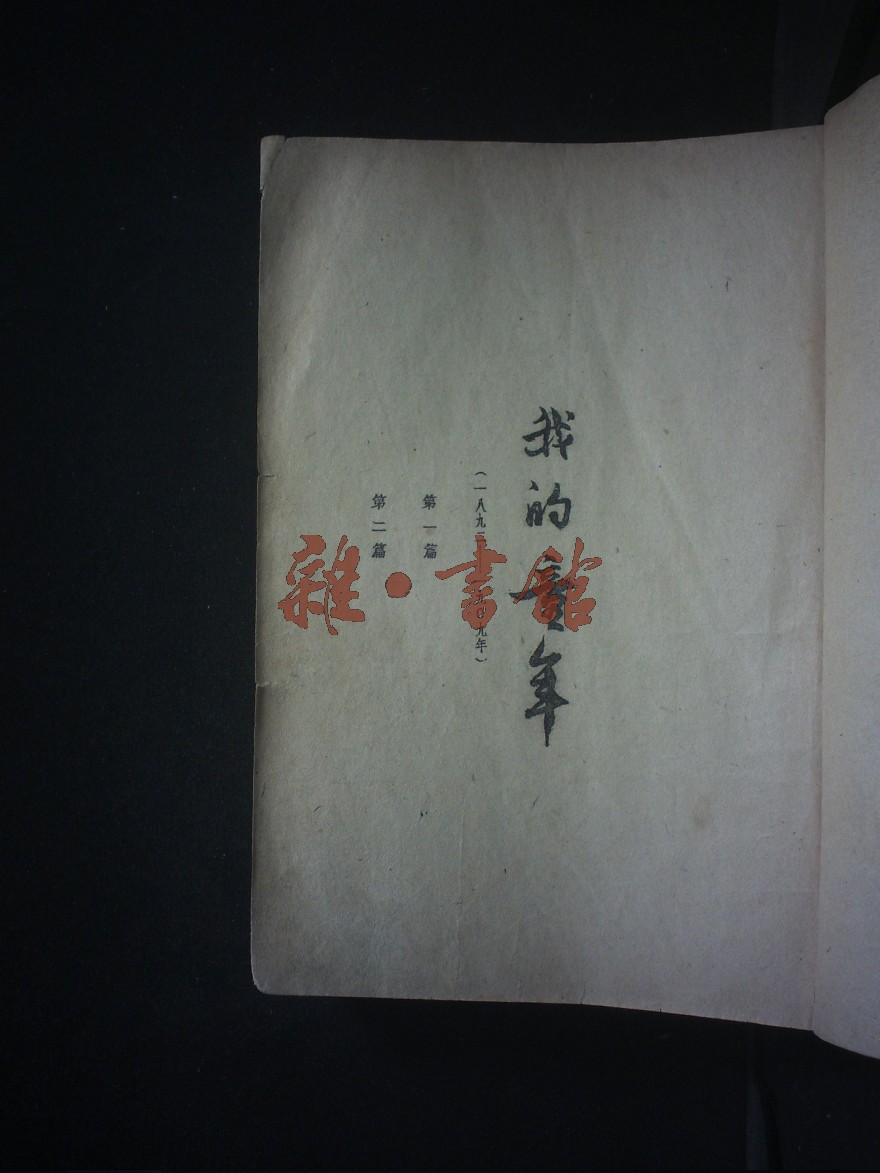 我的童年
(一八九 〇九年)
第一篇
第二篇
雜·書館